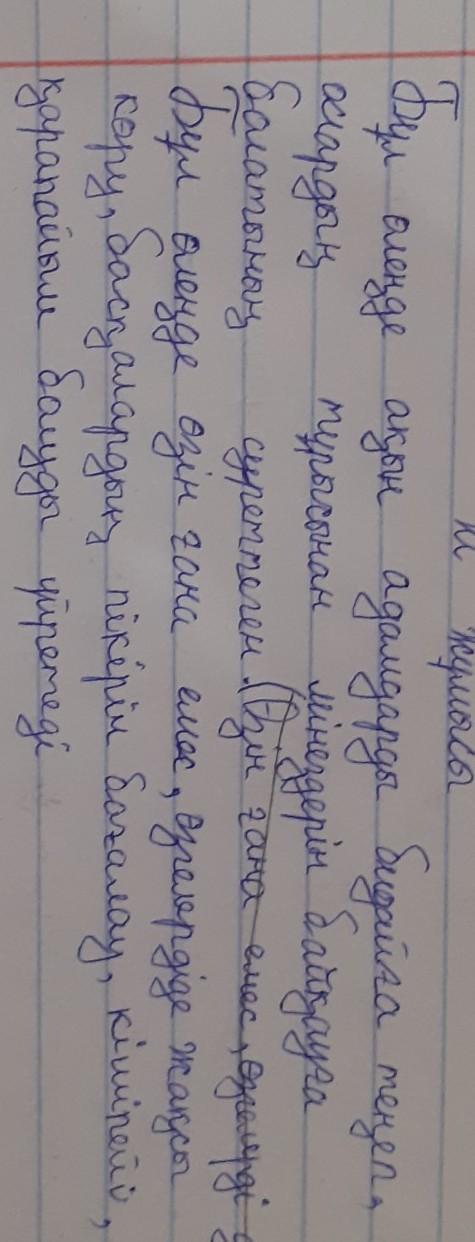 жұмысы
Бұл өлеңде ақын адамдарды бидайға теңеп,
олардың тұрысынан мінездерін байқауға
болатының суреттеген. (Өзін ғана емес, өзгелерді
Бұл өлеңде өзін ғана емес, өзгелердіде жақсы
көру, басқалардың пікерін бағалау, кішіпейіл,
қарапайым болуды үйретеді